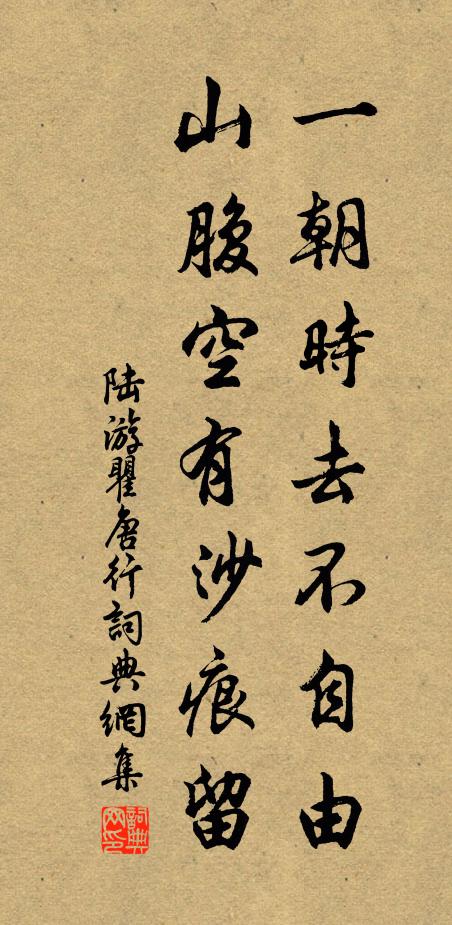 一朝時去不自由
山腹空有沙痕留
陆游瞿唐行詞典網集
詞典网印